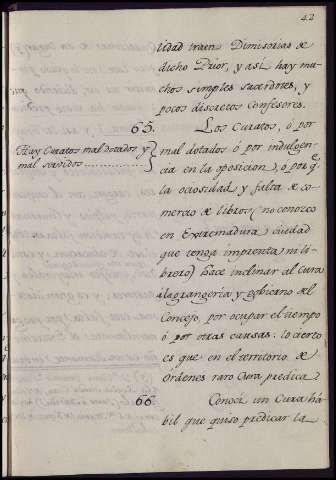 42
lidad traen Dimisorias de
dicho Prior, y así hay mu-
chos simples sacerdotes, y
pocos discretos Confesores.
65.
Los Curatos, ó por
Hay Curatos mal dotados y
mal servidos
mal dotados ó por indulgen-
cia en la oposicion, ó por q.e
la ociosidad y falta de co-
mercio de libros, (no conozco
en Extremadura ciudad
que tenga imprenta ni li-
brero) hace inclinar al Cura
á la grangería y gobierno del
Concejo, por ocupar el tiempo
ó por otras causas: lo cierto
es que en el territorio de
Ordenes raro Cura predica.
66.
Conocí un Cura há-
bil que quiso predicar la